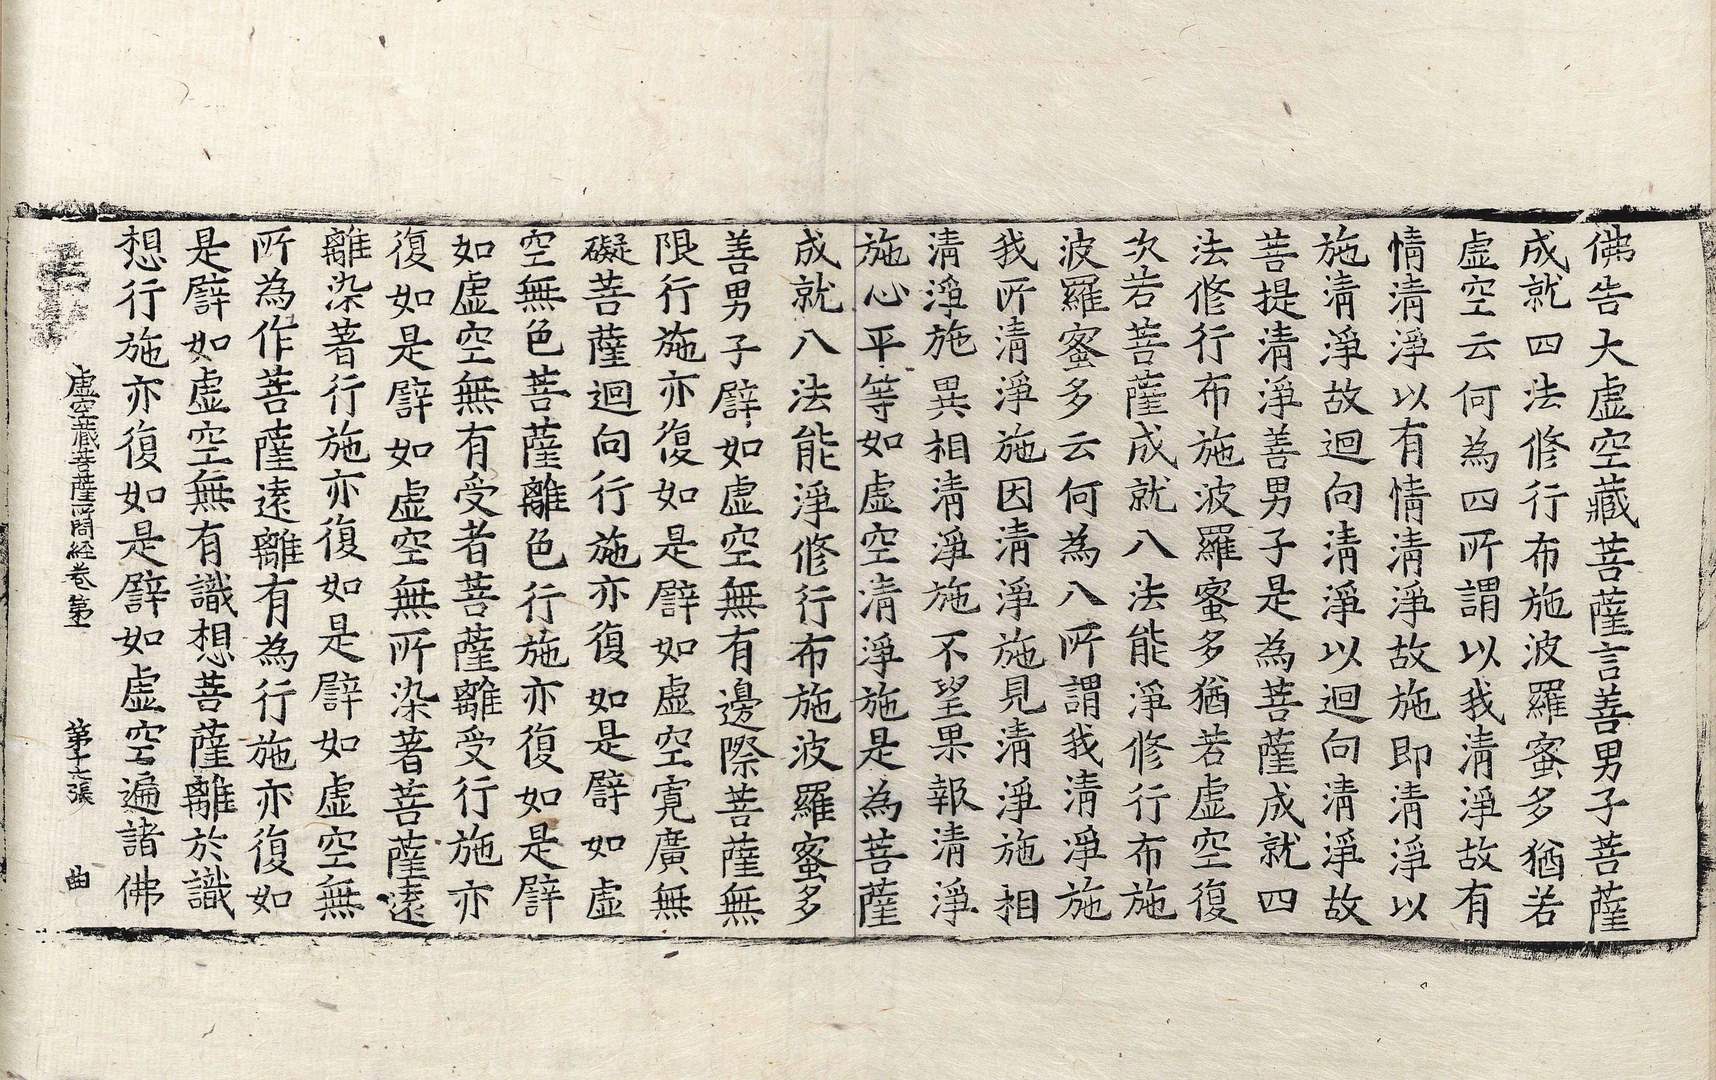 佛告大虛空藏菩薩言善男子菩薩
成就四法修行布施波羅蜜多猶若
虛空云何為四所謂以我清淨故有
情清淨以有情清淨故施即清淨以
施清淨故迴向清淨以迴向清淨故
菩提清淨善男子是為菩薩成就四
法修行布施波羅蜜多猶若虛空復
次若菩薩成就八法能淨修行布施
波羅蜜多云何為八所謂我清淨施
我所清淨施因清淨施見清淨施相
清淨施異相清淨施不望果報清淨
施心平等如虛空清淨施是為菩薩
成就八法能淨修行布施波羅蜜多
善男子譬如虛空無有邊際菩薩無
限行施亦復如是譬如虛空寬廣無
礙菩薩迴向行施亦復如是譬如虛
空無色菩薩離色行施亦復如是譬
如虛空無有受者菩薩離受行施亦
復如是譬如虛空無所染著菩薩遠
離染著行施亦復如是譬如虛空無
所為作菩薩遠離有為行施亦復如
是譬如虛空無有識想菩薩離於識
想行施亦復如是譬如虛空遍諸佛
虛空藏菩薩所問經卷第一 第十六張 曲